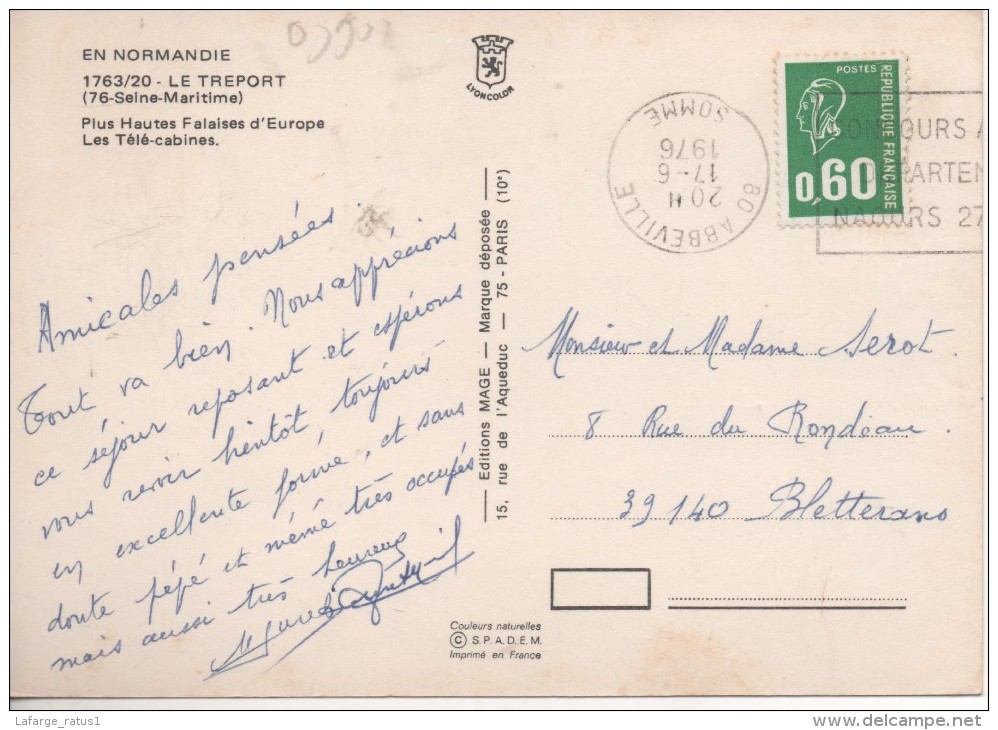 EN NORMANDIE
1763/20 - LE TREPORT
(76-Seine-Maritime)
Plus Hautes Falaises d'Europe
Les Télé-cabines.
LYONCOLOR
80 ABBEVILLE
20 H
17-6
1976
SOMME
POSTES
REPUBLIQUE FRANÇAISE
0,60
CONCOURS A
DEPARTEN
NAOURS 27
Amicales pensées.
Tout va bien. Nous apprécions
ce séjour reposant et espérons
vous revoir bientôt, toujours
en excellente forme, et sans
doute pépé et mémé très occupés
mais aussi très heureux
Editions MAGE — Marque déposée
15, rue de l'Aqueduc — 75 - PARIS (10e)
Monsieur et Madame Serot.
8 Rue du Rondeau.
39140 Bletterans
Couleurs naturelles
© S.P.A.D.E.M.
Imprimé en France
Lafarge_ratus1
delcampe.net